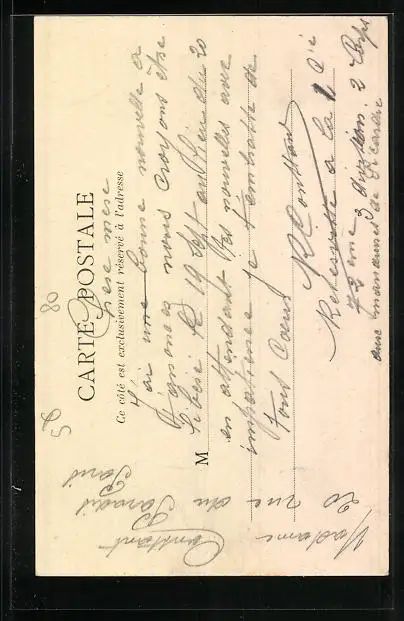 58 80
CARTE POSTALE
Ce côté est exclusivement réservé à l'adresse
M
Chère mère
J'ai une bonne nouvelle à
t'annoncer nous croyons être
libéré le 19 Sept au lieu du 20
en attendant des nouvelles avec
impatience je t'embrasse de
tout cœur
R Constant
à la 2 Cie
72 eme 3 division 2 Corps
aux manœuvres de Picardie
Madame Constant
20 rue du Paradis
Paris